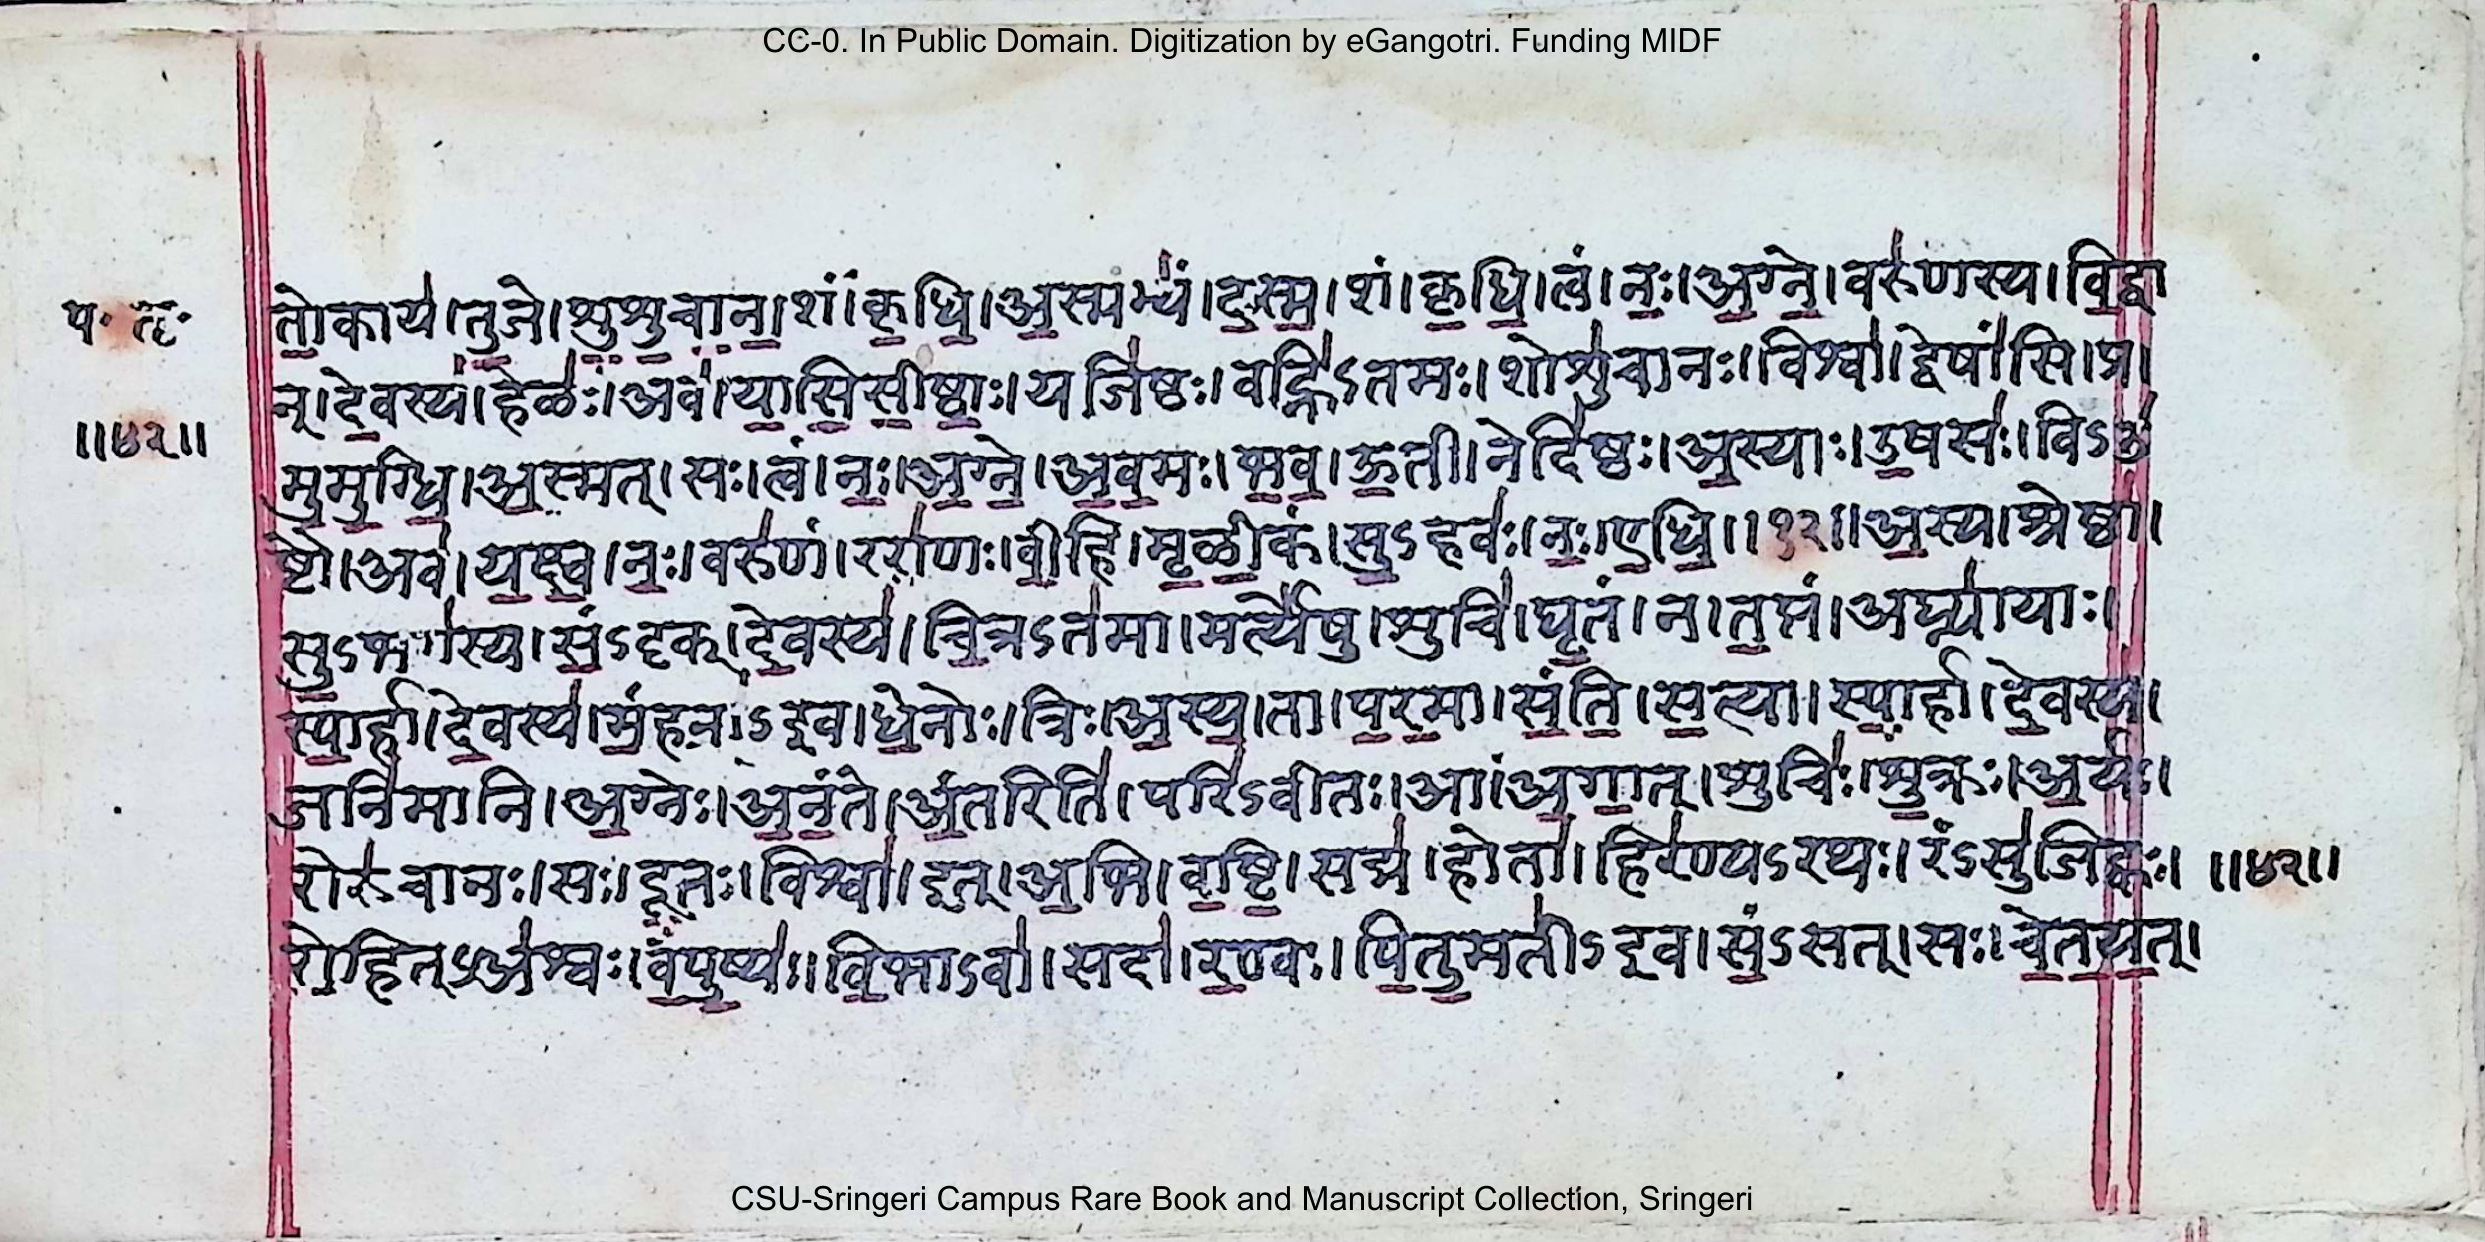 CC-0. In Public Domain. Digitization by eGangotri. Funding MIDF
प॰ तृ॰
॥४२॥
तो॒काय॑।तु॒जे।शु॒शु॒चा॒न॒।शं।कृ॒धि॒।अ॒स्मभ्यं॑।द॒स्म॒।शं।कृ॒धि॒।त्वं।नः॒।अ॒ग्ने॒।वरु॑णस्य।वि॒द्वा
न्।दे॒वस्य॑।हेळः॑।अव॑।या॒सि॒सी॒ष्ठाः॒।यजि॑ष्ठः।वह्नि॑ऽतमः।शोशु॑चानः।विश्वा॑।द्वेषां॑सि।प्र।
मु॒मु॒ग्धि॒।अ॒स्मत्।सः।त्वं।नः॒।अ॒ग्ने॒।अ॒व॒मः।भ॒व॒।ऊ॒ती।नेदि॑ष्ठः।अ॒स्याः।उ॒षसः॑।विऽउ॑
ष्टौ।अव॑।य॒क्ष्व॒।नः॒।वरु॑णं।ररा॑णः।वी॒हि।मृ॒ळी॒कं।सु॒ऽहवः॑।नः॒।ए॒धि॒॥१२॥अ॒स्य।श्रेष्ठा॑।
सु॒ऽभग॑स्य।सं॒ऽदृक्।दे॒वस्य॑।चि॒त्रऽत॑मा।मर्त्ये॑षु।शुचि॑।घृ॒तं।न।त॒प्तं।अघ्न्या॑याः।
स्पा॒र्हा।दे॒वस्य॑।मं॒हना॑ऽइव।धे॒नोः।त्रिः।अ॒स्य॒।ता।प॒र॒मा।सं॒ति॒।स॒त्या।स्पा॒र्हा।दे॒वस्य॑।
जनि॑मानि।अ॒ग्नेः।अ॒नं॒ते।अं॒तरिति॑।परि॑ऽवीतः।आ।अ॒गा॒त्।शुचिः॑।शु॒क्रः।अ॒र्यः।
रोरु॑चानः।सः।दू॒तः।विश्वा॑।इत्।अ॒भि।व॒ष्टि॒।सद्म॑।होता॑।हिर॑ण्यऽरथः।रंऽसु॑जिह्वः।
॥४२॥
रो॒हित्ऽअ॑श्वः।व॒पु॒ष्यः॑।वि॒भाऽवा॑।सदा॑।र॒ण्वः।पि॒तु॒मती॑ऽइव।सं॒ऽसत्।सः।चे॒त॒य॒त्।
CSU-Sringeri Campus Rare Book and Manuscript Collection, Sringeri